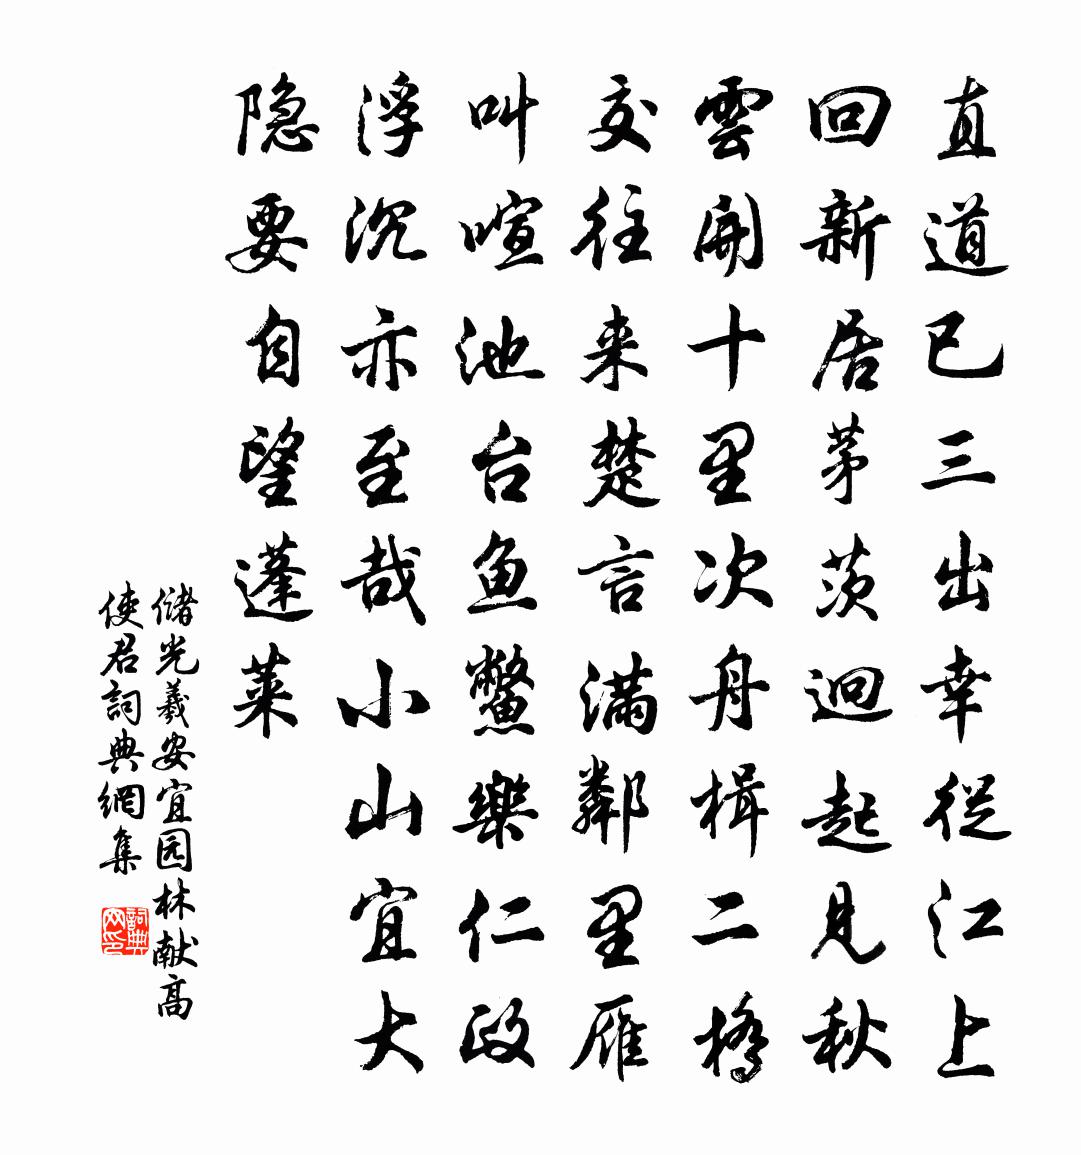 直道已三出幸從江上
回新居茅茨迥起見秋
雲開十里次舟楫二橋
交往来楚言滿鄰里雁
叫喧池台魚鱉樂仁政
浮沉亦至哉小山宜大
隐要自望蓬萊
儲光羲安宜园林献高
使君詞典網集
詞典网印